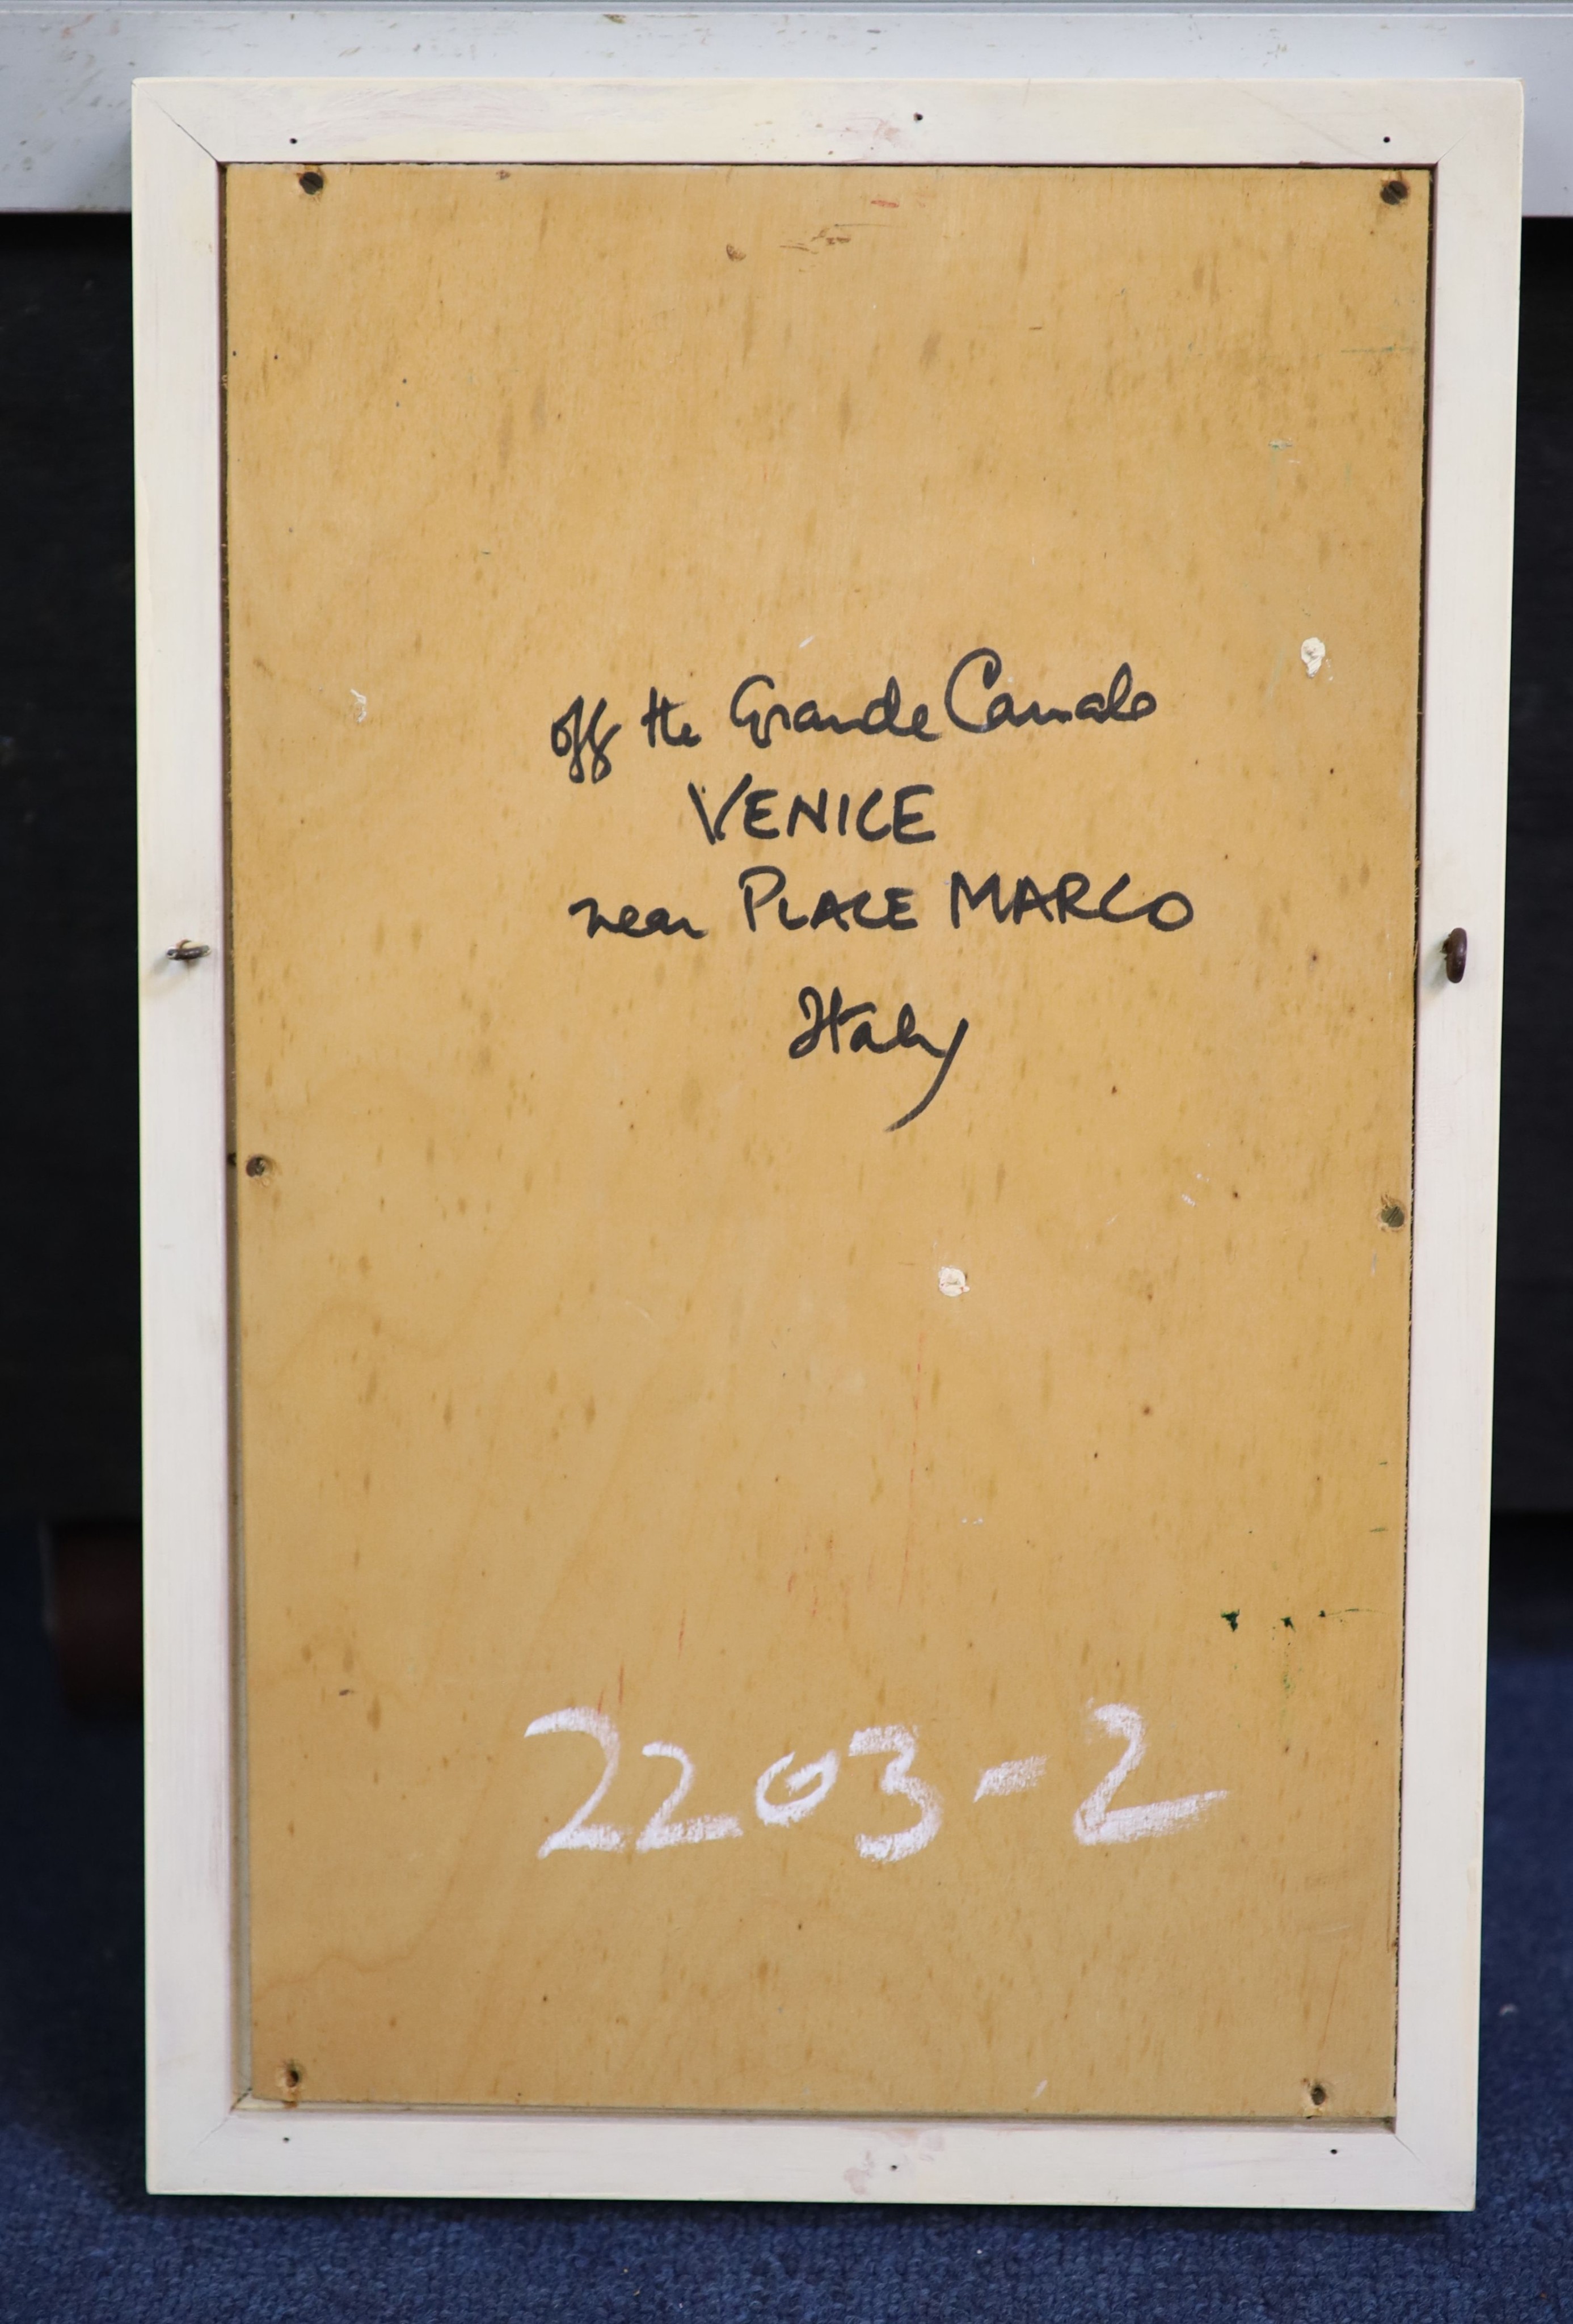 off the Grande Canale
VENICE
near PLACE MARCO
Italy
2203-2